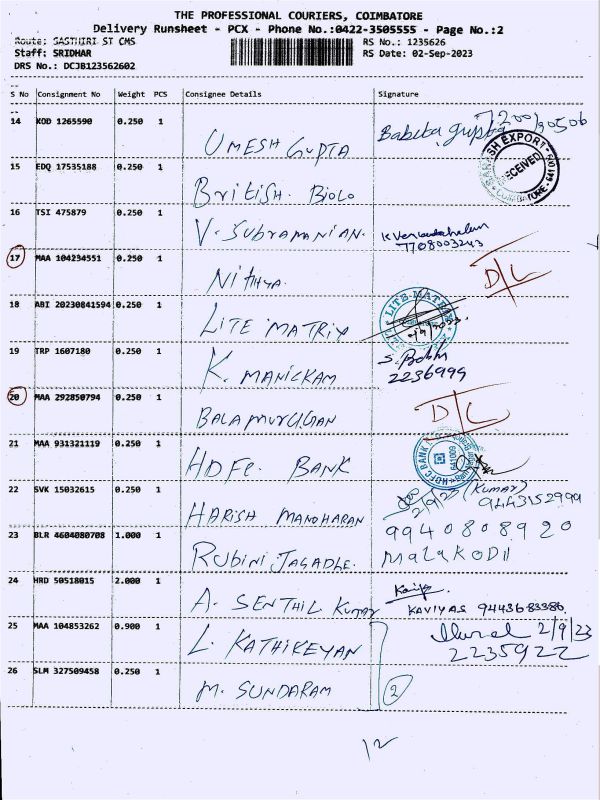 THE PROFESSIONAL COURIERS, COIMBATORE
Delivery Runsheet - PCX - Phone No.:0422-3505555 - Page No.:2
Route: SASTHIRI ST CMS
RS No.: 1235626
Staff: SRIDHAR
RS Date: 02-Sep-2023
DRS No.: DCJB123562602
S No Consignment No Weight PCS Consignee Details Signature
14 KOD 1265590 0.250 1 UMESH GUPTA Babita gupta
15 EDQ 17535188 0.250 1 British. Biolo
EXPORT RECEIVED COIMBATORE
16 TSI 475879 0.250 1 V. SUBRAMANIAN.
7708003243
17 MAA 104234551 0.250 1 Nithya. D/L
18 ABI 20230841594 0.250 1 LITE MATRIX LITE MATRIX
19 TRP 1607180 0.250 1 K. MANICKAM S.
2236999
20 MAA 292850794 0.250 1 BALAMURUGAN D/L
21 MAA 931321119 0.250 1 HDFC. BANK HDFC BANK
22 SVK 15032615 0.250 1 HARISH MANOHARAN 2/9/23 (KUMAR)
9443152999
23 BLR 4604080708 1.000 1 RUBINI JAGADLE. 9940808920
MALAKODI
24 HRD 50518015 2.000 1 A. SENTHIL KUMAR
KAVIYAS 9443683386
25 MAA 104853262 0.900 1 L. KATHIKEYAN 2/9/23
2235922
26 SLM 327509458 0.250 1 M. SUNDARAM 2
12